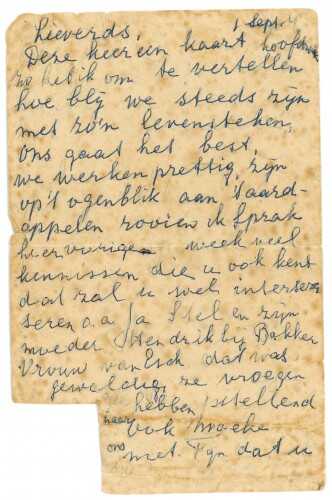 Lieverds, 1 Sept.
Deze keer een kaart hoofdz
zakelik om te vertellen
hoe blij we steeds zijn
met zo'n levensteken,
Ons gaat het best,
we werken prettig, zijn
op't ogenblik aan 't aard-
appelen rooien ik sprak
hier vorige week veel
kennissen die u ook kent
dat zal u wel interes
seren o.a. Ja Stel en zijn
moeder Hendrik bij Bakker
Vrouw van Esch dat was
geweldig, ze vroegen
hebben stellend
naar ook moeke
ons met. Fijn dat u